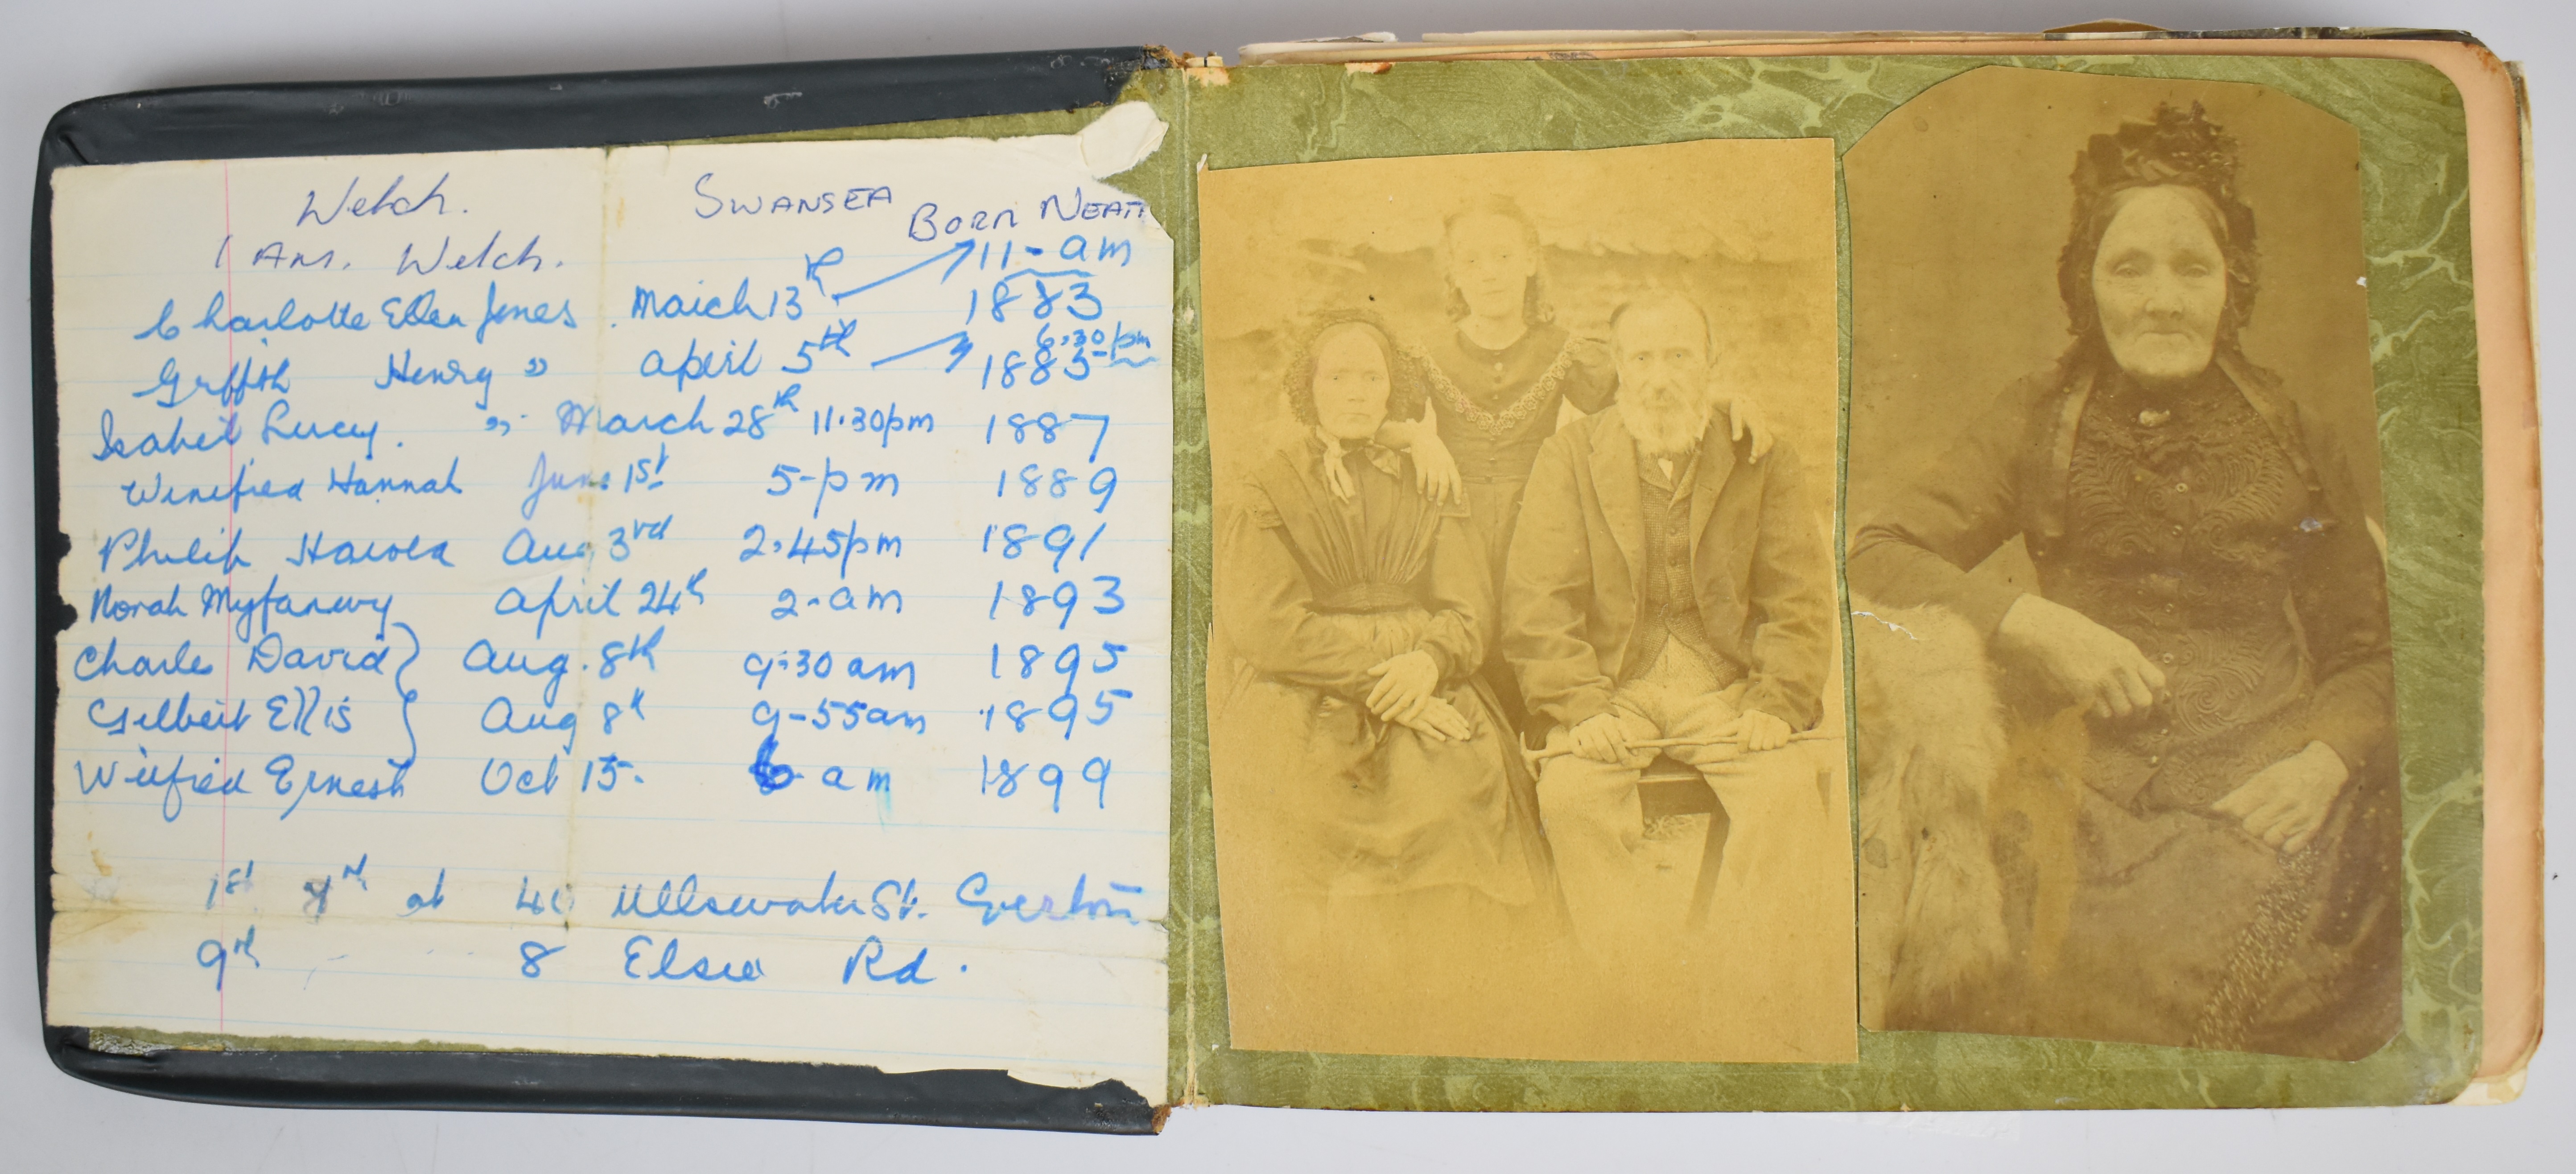 Welch. SWANSEA
BORN NEAT
1 Ans. Welch.
11-am
Charlotte Ellen Jones. March 13th 1883
6.30 pm
Griffith Henry " April 5th 1885
Isabel Lucy. " March 28th 11.30pm 1887
Winifred Hannah June 1st 5-pm 1889
Philip Harold Aug 3rd 2.45pm 1891
Norah Myfanwy April 24th 2-am 1893
Charles David } Aug. 8th 9.30 am 1895
Gilbert Ellis } Aug 8th 9-55am 1895
Wilfred Ernest Oct 15. 6 am 1899
1st at Ullswater St. Everton
9th 8 Elsie Rd.